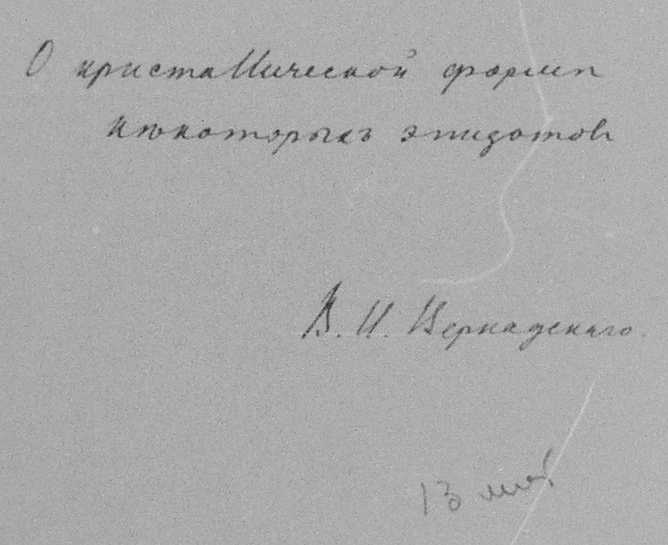 О кристаллической формѣ
нѣкоторыхъ эпидотовъ
В. И. Вернадскаго.
13